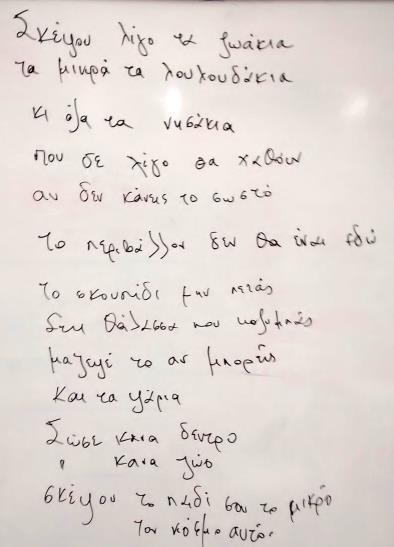 Σκέψου λίγο τα ζωάκια
τα μικρά τα λουλουδάκια
κι όλα τα νησάκια
που σε λίγο θα χαθούν
αν δεν κάνεις το σωστό
το περιβάλλον δεν θα είναι εδώ
το σκουπίδι μην πετάς
στη θάλασσα που κολυμπάς
μάζεψέ το αν μπορείς
και τα ψάρια
Σώσε κανα δεντρο
" κανα ζώο
σκέψου το παιδί σου το μικρό
τον κόσμο αυτό.